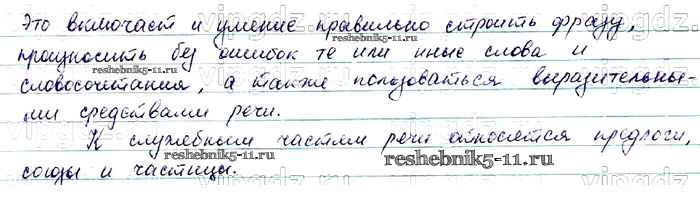 Это включает и умение правильно строить фразу,
произносить без ошибок те или иные слова и
словосочетания, а также пользоваться выразительны-
ми средствами речи.
К служебным частям речи относятся предлоги,
союзы и частицы.
reshebnik5-11.ru
reshebnik5-11.ru
reshebnik5-11.ru
reshebnik5-11.ru